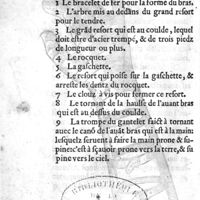 1 Le bracelet de fer pour la forme du bras.
2 L'arbre mis au dedans du grand resort
pour le tendre.
3 Le grãd resort qui est au coulde, lequel
doit estre d'acier trempé, & de trois piedz
de longueur ou plus.
4 Le rocquet.
5 La gaschette.
6 Le resort qui poise sur la gaschette, &
arreste les dentz du rocquet.
7 Le clouz à vis pour fermer ce resort.
8 Le tornant de la hausse de l'auant bras
qui est au dessus du coulde.
9 La trompe du gantelet faict à tornant
auec le canõ de l'auãt bras qui est à la main:
lesquelz seruent à faire la main prone & su-
pine: c'est à sçauoir prone vers la terre, & su
pine vers le ciel.
BIBLIOTHEQUE
DE LA